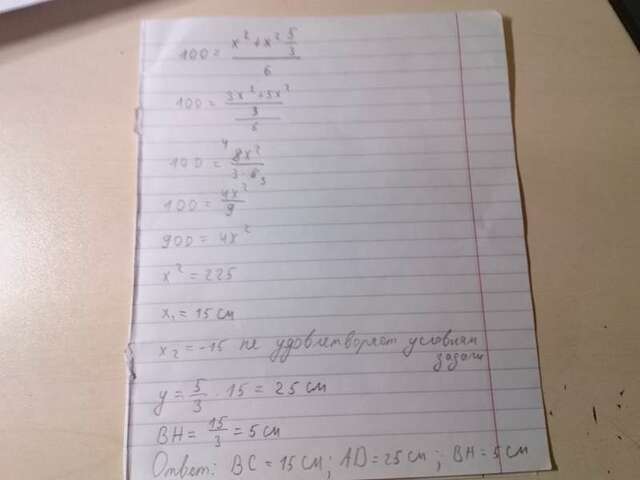 100 = (x² + x² 5/3) / 6
100 = ((3x² + 5x²) / 3) / 6
100 = 4 8x² / 3 · 6 3
100 = 4x² / 9
900 = 4x²
x² = 225
x₁ = 15 см
x₂ = -15 не удовлетворяет условиям
задачи
y = 5/3 · 15 = 25 см
BH = 15/3 = 5 см
Ответ: BC = 15 см; AD = 25 см; BH = 5 см